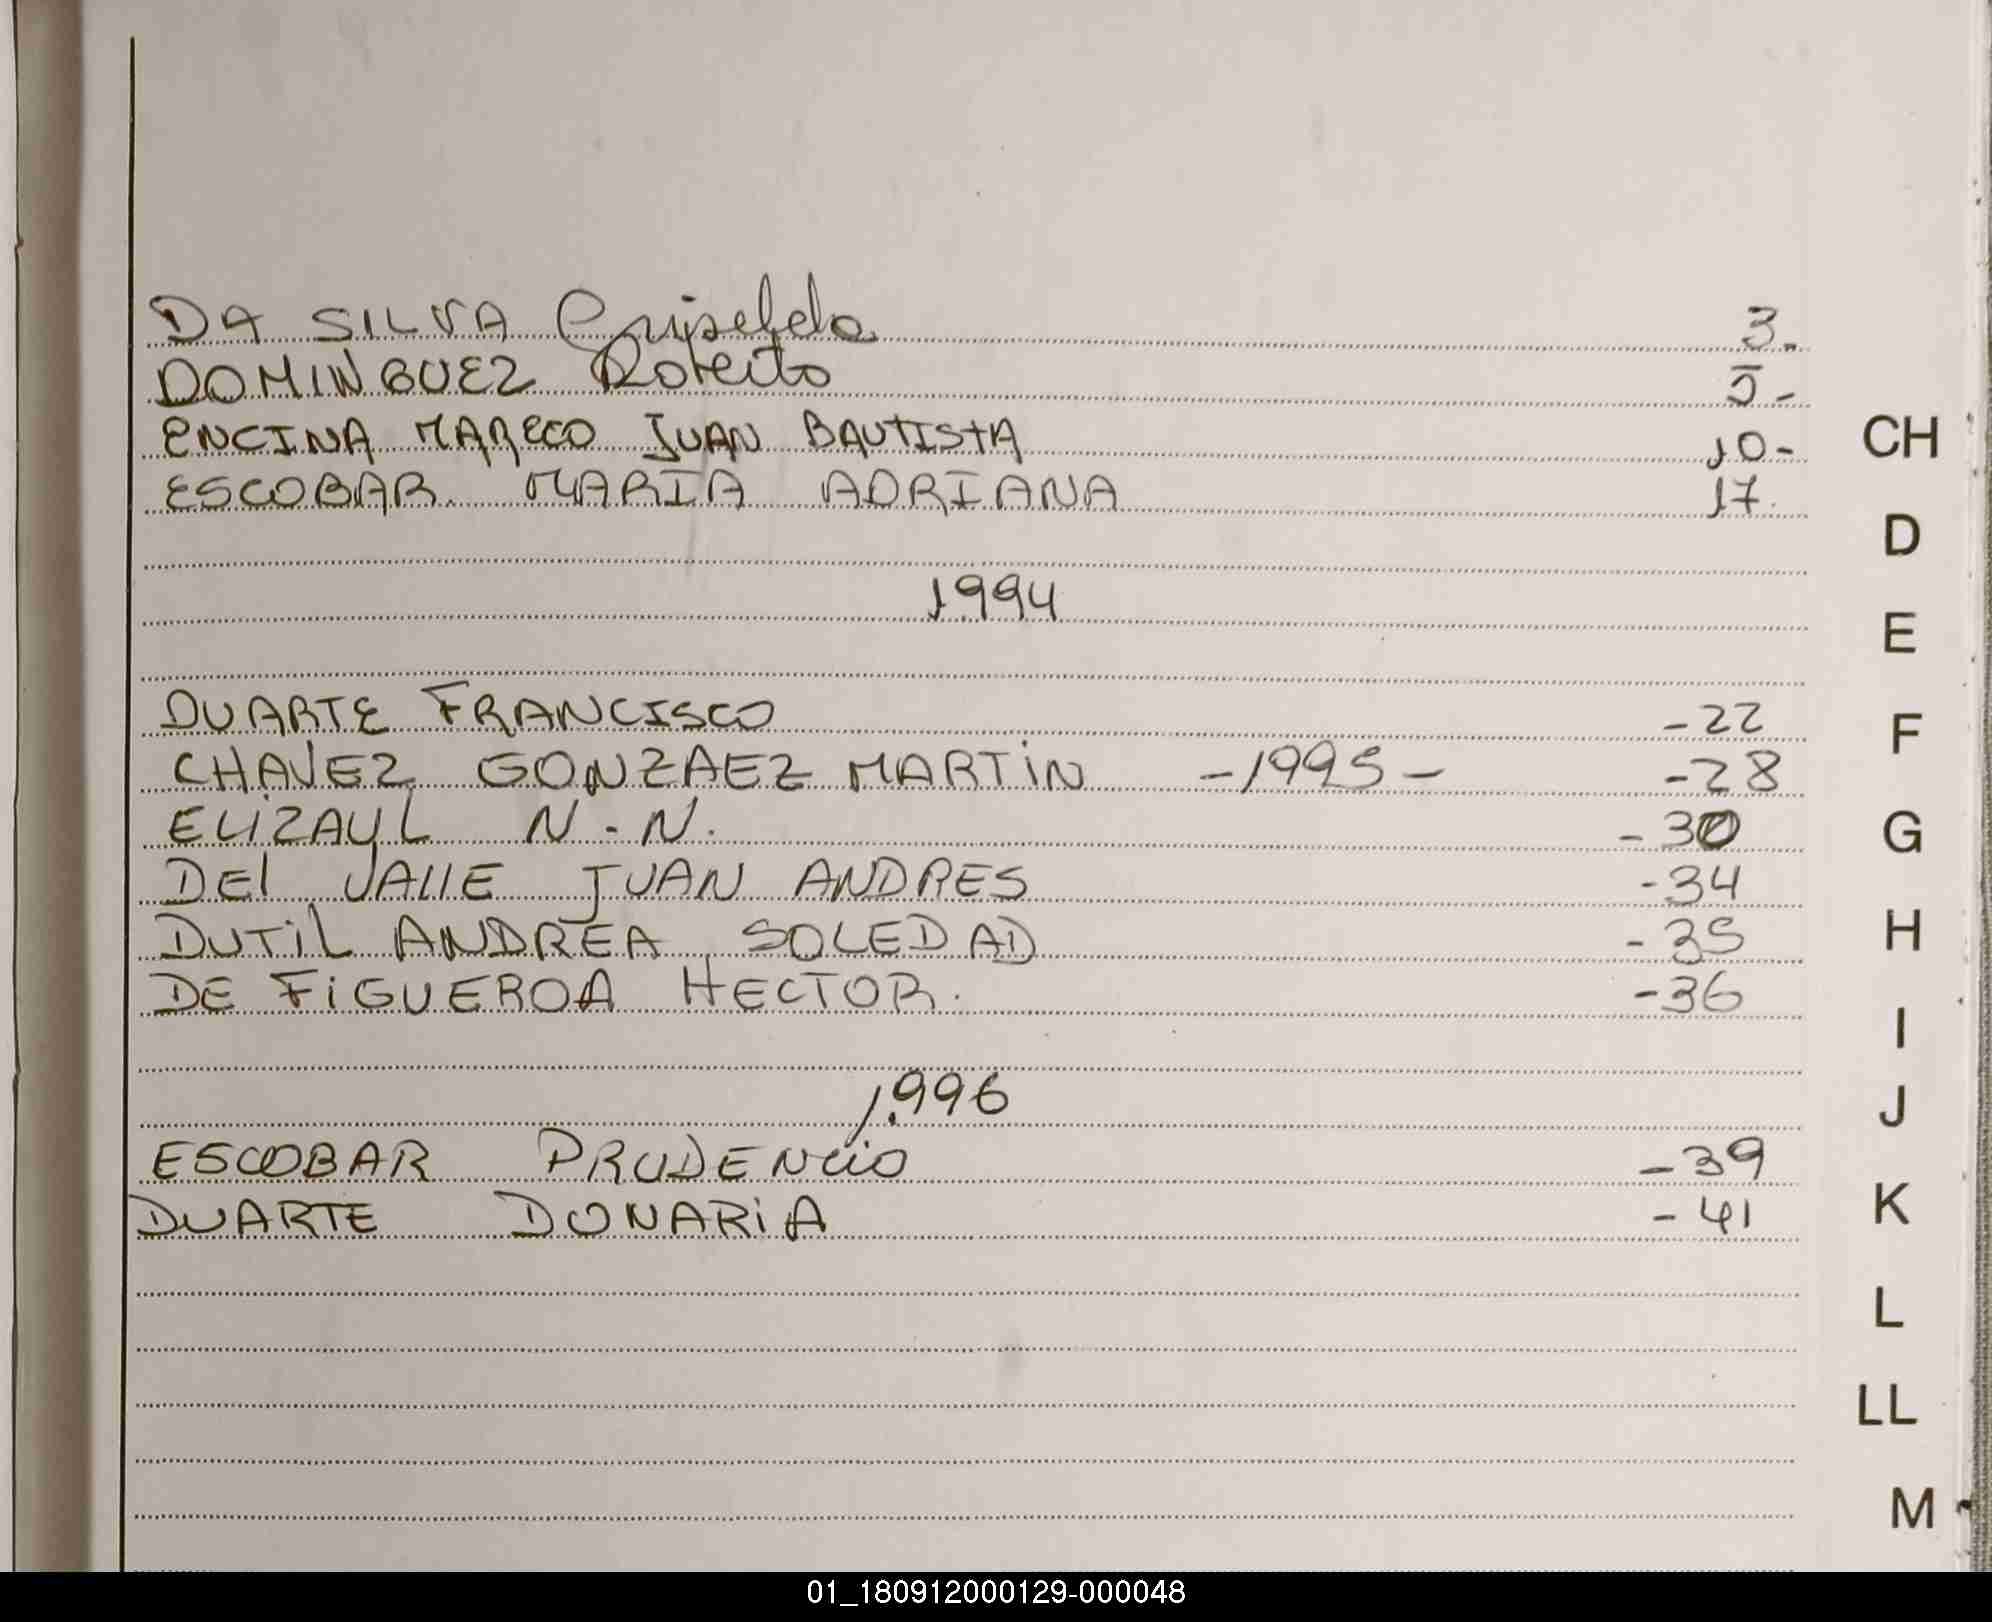 DA SILVA Griselda 3.
DOMINGUEZ Roberto 5-
ENCINA MARECO JUAN BAUTISTA 10-
ESCOBAR. MARIA ADRIANA 17.
1994
DUARTE FRANCISCO -22
CHAVEZ GONZAEZ MARTIN -1995- -28
ELIZAUL N.N. -30
DEl VAllE JUAN ANDRES -34
DUTIL ANDREA SOLEDAD -35
DE FIGUEROA HECTOR. -36
1.996
ESCOBAR PRUDENCIO -39
DUARTE DONARIA -41
CH
D
E
F
G
H
I
J
K
L
LL
M
01_180912000129-000048